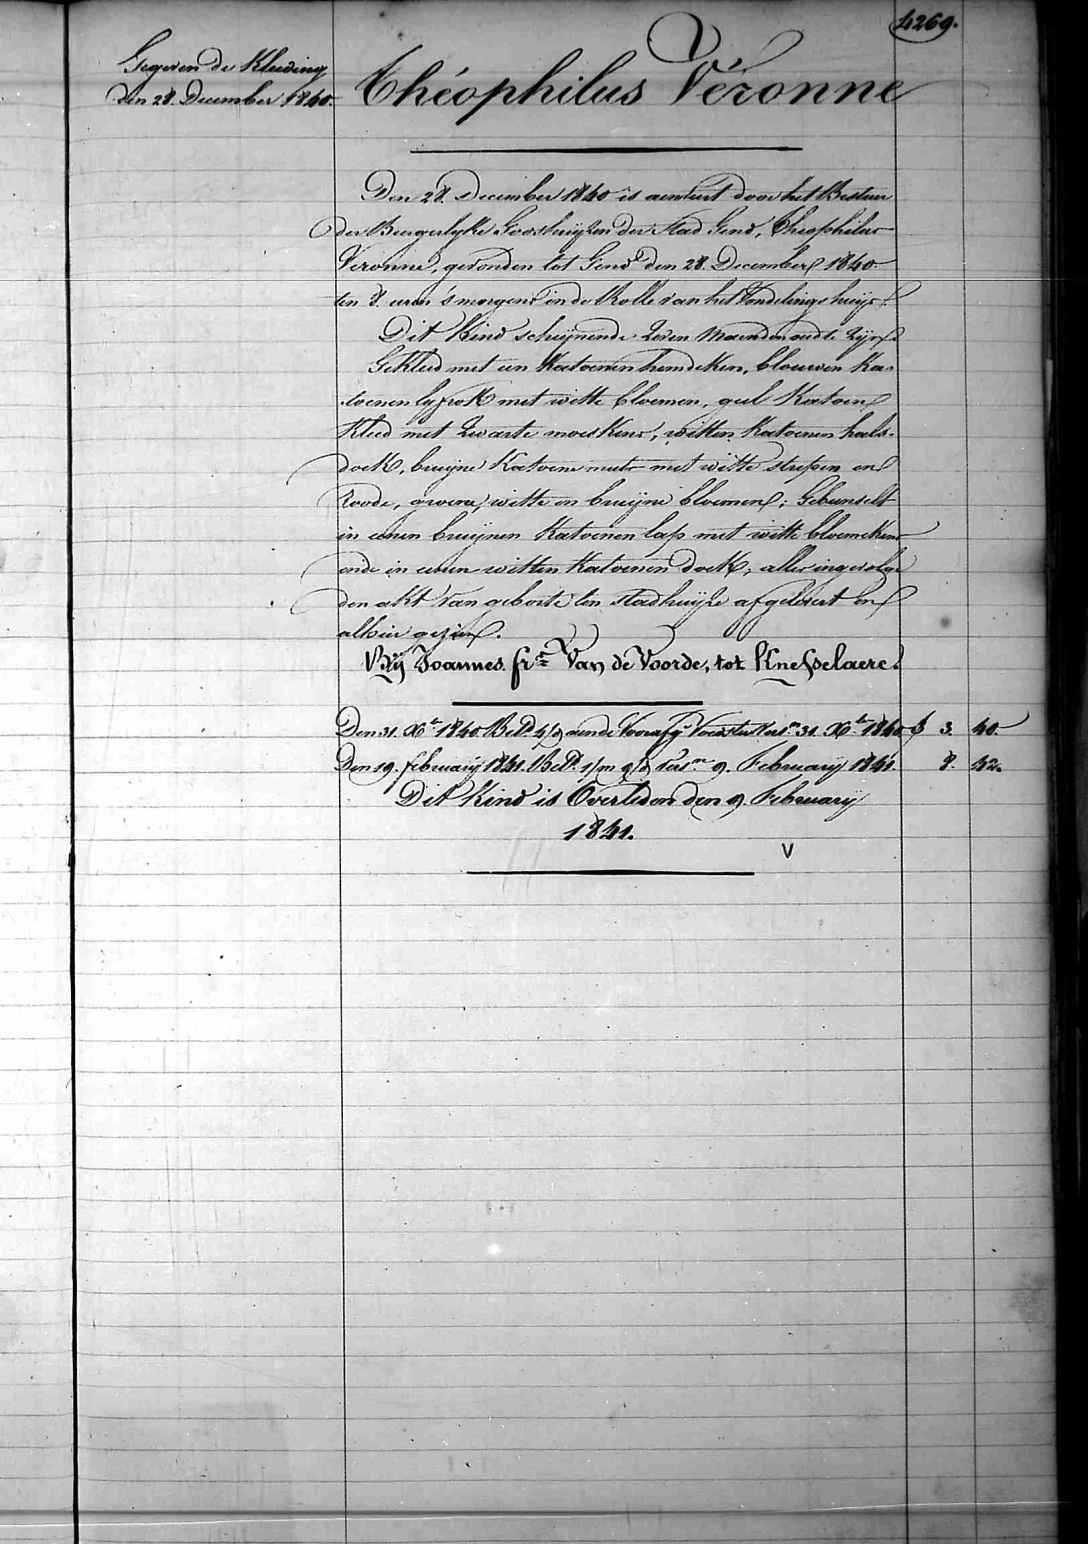 4269.
Gegeven de Kleeding
den 28. December 1840.
Théophilus Véronne
Den 28. December 1840 is aenveirt door het Bestuer
der Burgerlyke Godshuyzen der Stad Gend, Theophilus
Veronne, gevonden tot Gend den 28. December 1840.
ten 8. uren 's morgens in de Rolle van het Vondelingshuys.
Dit Kind scheynende zeven Maenden oud te zyn
Gekleed met een Katoenen hemdeken, blauwen Ka-
toenen lyfrok met witte bloemen, geel Katoen
Kleed met zwarte moeskens, witten Katoenen hals-
doek, bruyne Katoene muts met witte strepen en
Roode, groene, witte en bruyne bloemen; Gebunselt
in eenen bruynen Katoenen lap met witte bloemekens
ende in eenen witten Katoenen doek; alles ingevolge
den akt van geboorte ten stadhuyze afgelevert en
alhier gezien.
Bÿ Joannes. frs. Van de Voorde, tot Knesselaere.
Den 31. Xb. 1840. Betd. 4/d aen de Voorafg. Voedster 31. Xb. 1840 f 3. 40.
Den 19. february 1841. Betd. 1/m 9/d 9. February 1841. 8. 42.
Dit Kind is Overleden den 9. February
1841.
V